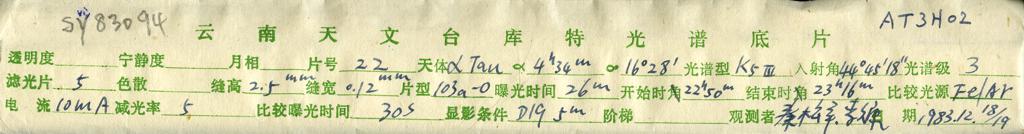 SY83094 云南天文台库特光谱底片 AT3H02
透明度 宁静度 月相 片号 22 天体 α Tau α 4h34m α 16°28' 光谱型 K5 III 入射角 44°45'18" 光谱级 3
滤光片 5 色散 缝高 2.5 mm 缝宽 0.12 mm 片型 103a-O 曝光时间 26m 开始时角 22h50m 结束时角 23h16m 比较光源 Fe/Ar
电流 10mA 减光率 5 比较曝光时间 30s 显影条件 D19 5m 阶梯 观测者 期 1983.12.18/19